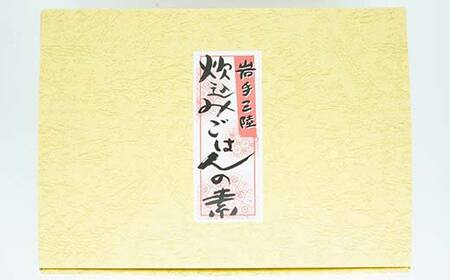 岩手三陸
炊込みごはんの素